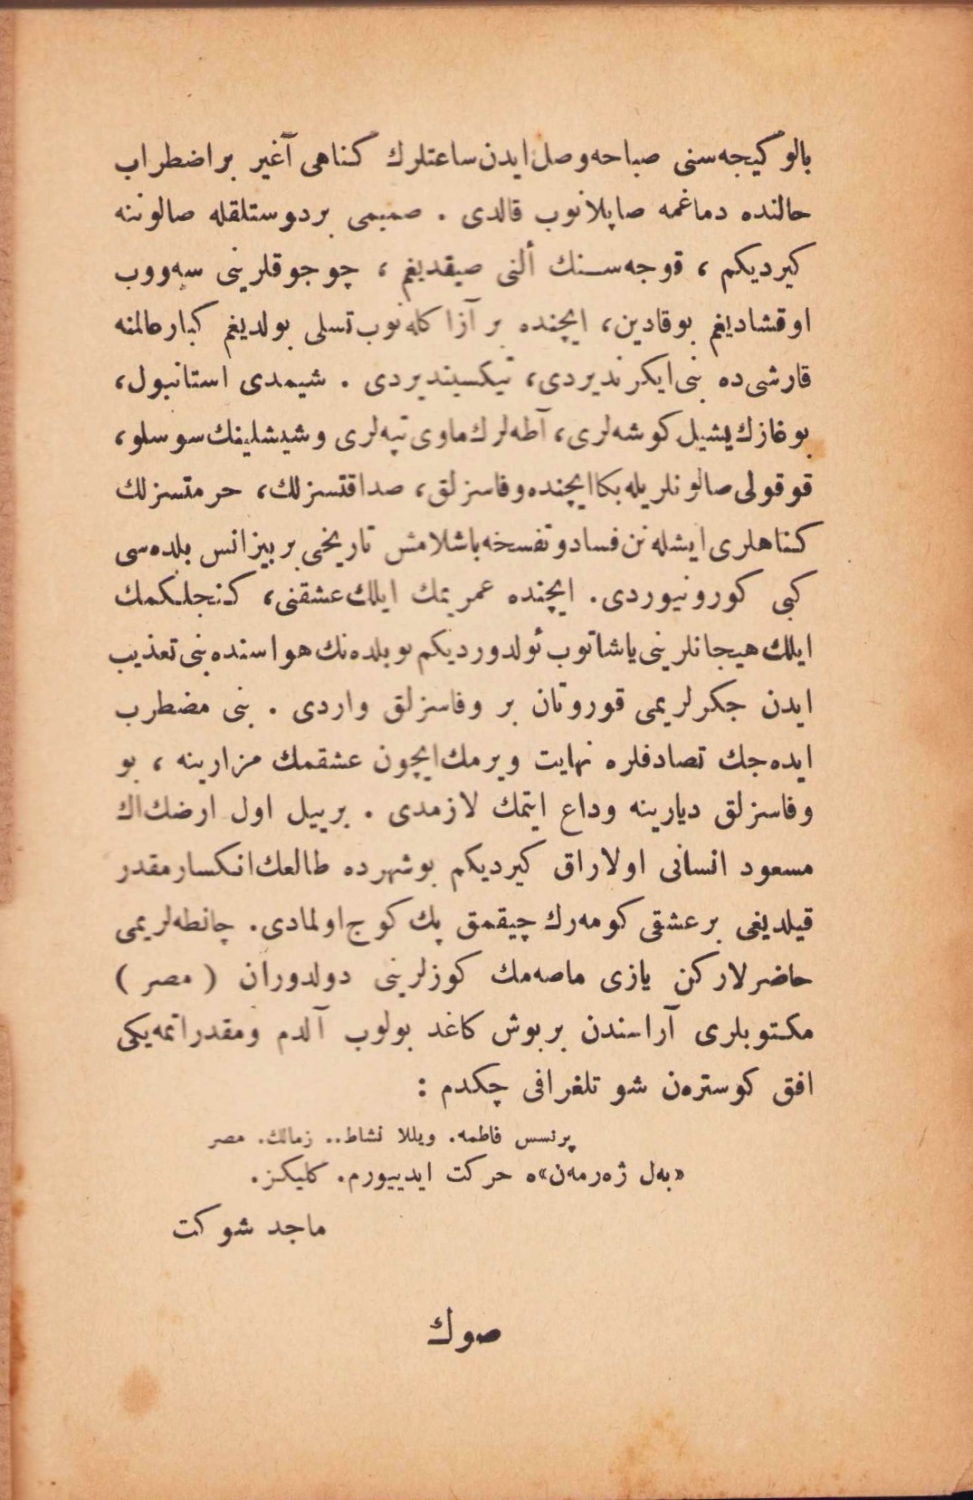 بالو كيجه‌سنى صباحه وصل ايدن ساعتلرك كناهى آغير بر اضطراب
حالنده دماغمه صاپلانوب قالدى . صميمى بر دوستلقله صالوننه
كيرديكم ، قوجه‌سـنك ألنى صيقديغم ، چوجوقلرينى سه‌ووب
اوقشاديغم بوقادين، ايچنده بر آزا كله‌نوب تسلى بولديغم كبار عالمنه
قارشى‌ده بنى ايكرنديردى، تيكسينديردى . شيمدى استانبول،
بوغازك يشيل كوشه‌لرى، آطه‌لرك ماوى تپه‌لرى و شيشلينك سوسلو،
قوقولى صالونلريله بكا ايچنده وفاسزلق، صداقتسزلك، حرمتسزلك
كناهلرى ايشله‌نن فساد و تفسخه باشلامش تاريخى بر بيزانس بلده‌سى
كبى كورونيوردى. ايچنده عمريمك ايلك عشقنى، كنجلكمك
ايلك هيجانلرينى ياشاتوب ئولدورديكم بو بلده‌نك هواسنده بنى تعذيب
ايدن جكرلريمى قوروتان بر وفاسزلق واردى . بنى مضطرب
ايده‌جك تصادفلره نهايت ويرمك ايچون عشقمك مزارينه ، بو
وفاسزلق ديارينه وداع ايتمك لازمدى . بر ييل اول ارضك اك
مسعود انسانى اولاراق كيرديكم بوشهرده طالعك انكسار مقدر
قيلديغى بر عشقى كومه‌رك چيقمق پك كوج اولمادى. چانطه‌لريمى
حاضرلاركن يازى ماصه‌مك كوزلرينى دولدوران ( مصر )
مكتوبلرى آراسندن بر بوش كاغد بولوب آلدم و مقدراتمه يكى
افق كوسترەن شو تلغرافى چكدم :
پرنسس فاطمه. ويللا نشاط.. زمالك. مصر
«به‌ل ژه‌رمه‌ن»ه حركت ايدييورم. كليكز.
ماجد شوكت
صوك